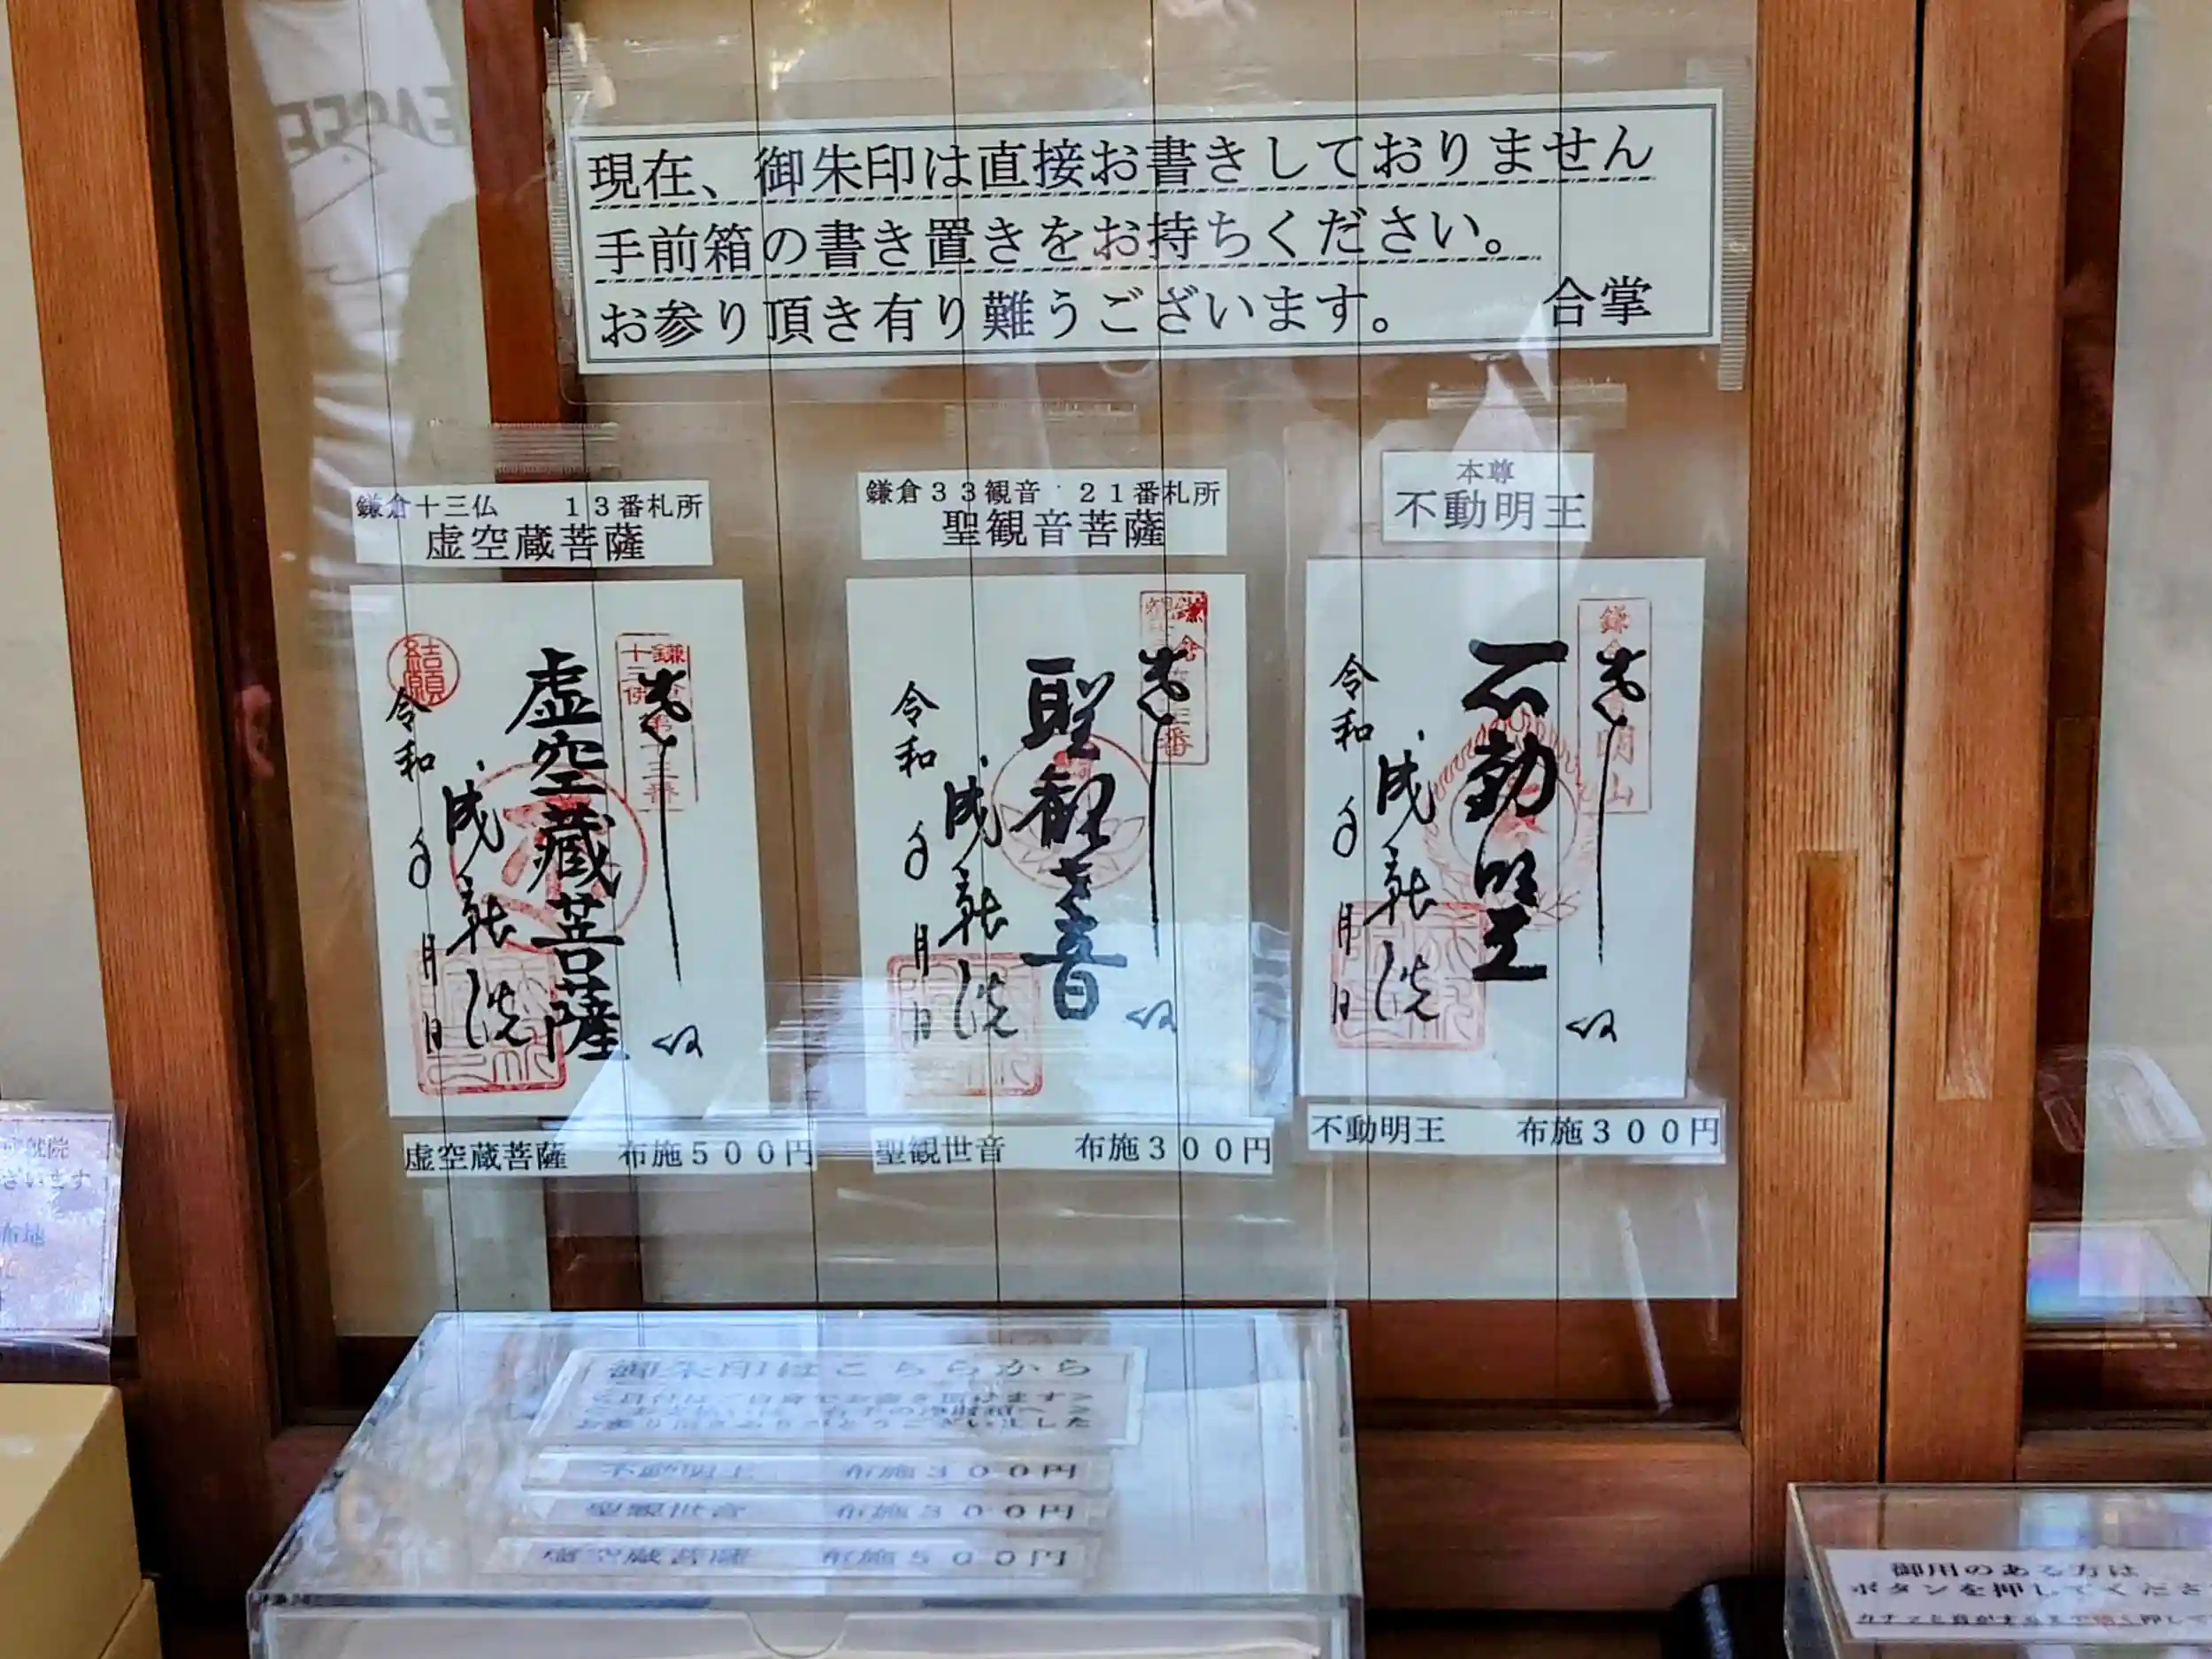 現在、御朱印は直接お書きしておりません
手前箱の書き置きをお持ちください。
お参り頂き有り難うございます。　合掌
鎌倉十三仏　１３番札所
虚空蔵菩薩
鎌倉３３観音　２１番札所
聖観音菩薩
本尊
不動明王
結願
虚空蔵菩薩
令和　年　月　日
成就院
聖観世音
令和　年　月　日
成就院
不動明王
令和　年　月　日
成就院
虚空蔵菩薩　布施５００円
聖観世音　布施３００円
不動明王　布施３００円
御朱印はこちらから
不動明王　布施３００円
聖観世音　布施３００円
虚空蔵菩薩　布施５００円
御用のある方は
ボタンを押してくださ